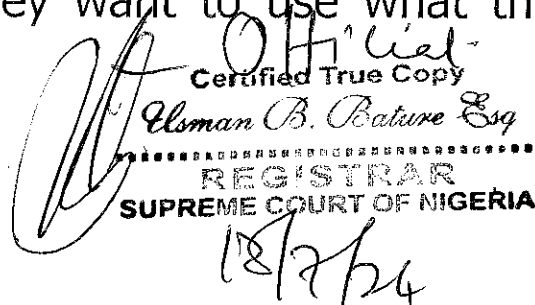 ey want to use what th
Official
Certified True Copy
Usman B. Bature Esq
REGISTRAR
SUPREME COURT OF NIGERIA
18/7/24